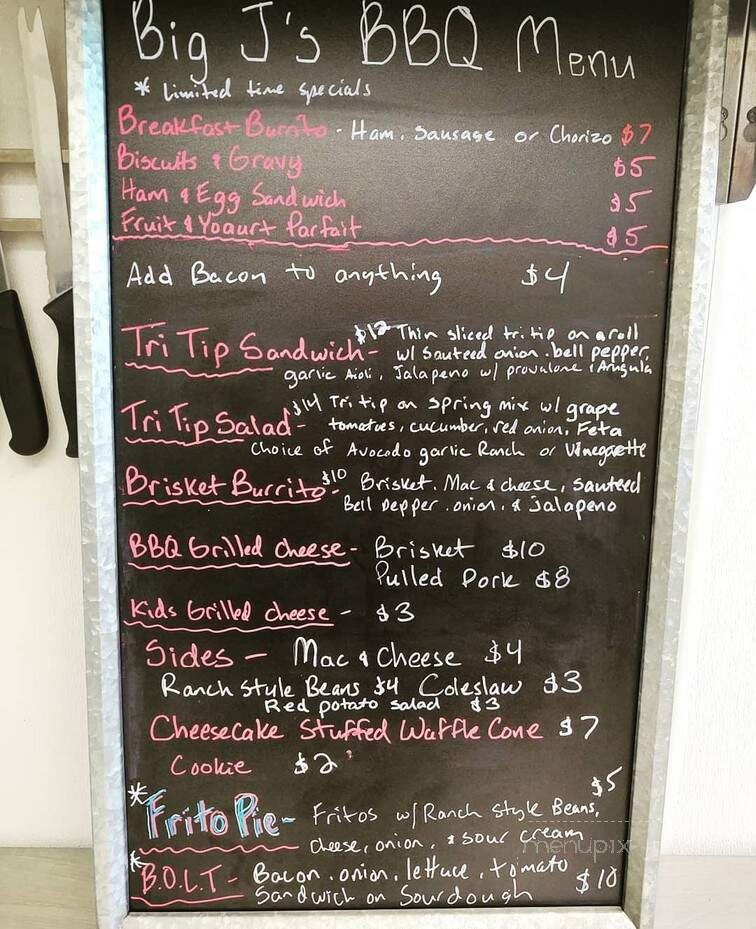 Big J's BBQ Menu
* Limited time specials
Breakfast Burrito - Ham, Sausage or Chorizo $7
Biscuits & Gravy $5
Ham & Egg Sandwich $5
Fruit & Yogurt Parfait $5
Add Bacon to anything $4
Tri Tip Sandwich - $12 Thin sliced tri tip on a roll
w/ sauteed onion, bell pepper,
garlic Aioli, Jalapeno w/ provalone & Arugula
Tri Tip Salad - $14 Tri tip on spring mix w/ grape
tomatoes, cucumber, red onion, Feta
choice of Avocado garlic Ranch or Vinegrette
Brisket Burrito - $10 Brisket, Mac & cheese, sauteed
Bell pepper, onion, & jalapeno
BBQ Grilled cheese - Brisket $10
Pulled Pork $8
Kids Grilled cheese - $3
Sides - Mac & Cheese $4
Ranch Style Beans $4 Coleslaw $3
Red potato salad $3
Cheesecake Stuffed Waffle Cone $7
Cookie $2
$5
* Frito Pie - Fritos w/ Ranch Style Beans,
cheese, onion, & sour cream
menupix
* B.O.L.T - Bacon, onion, lettuce, tomato
Sandwich on Sourdough $10